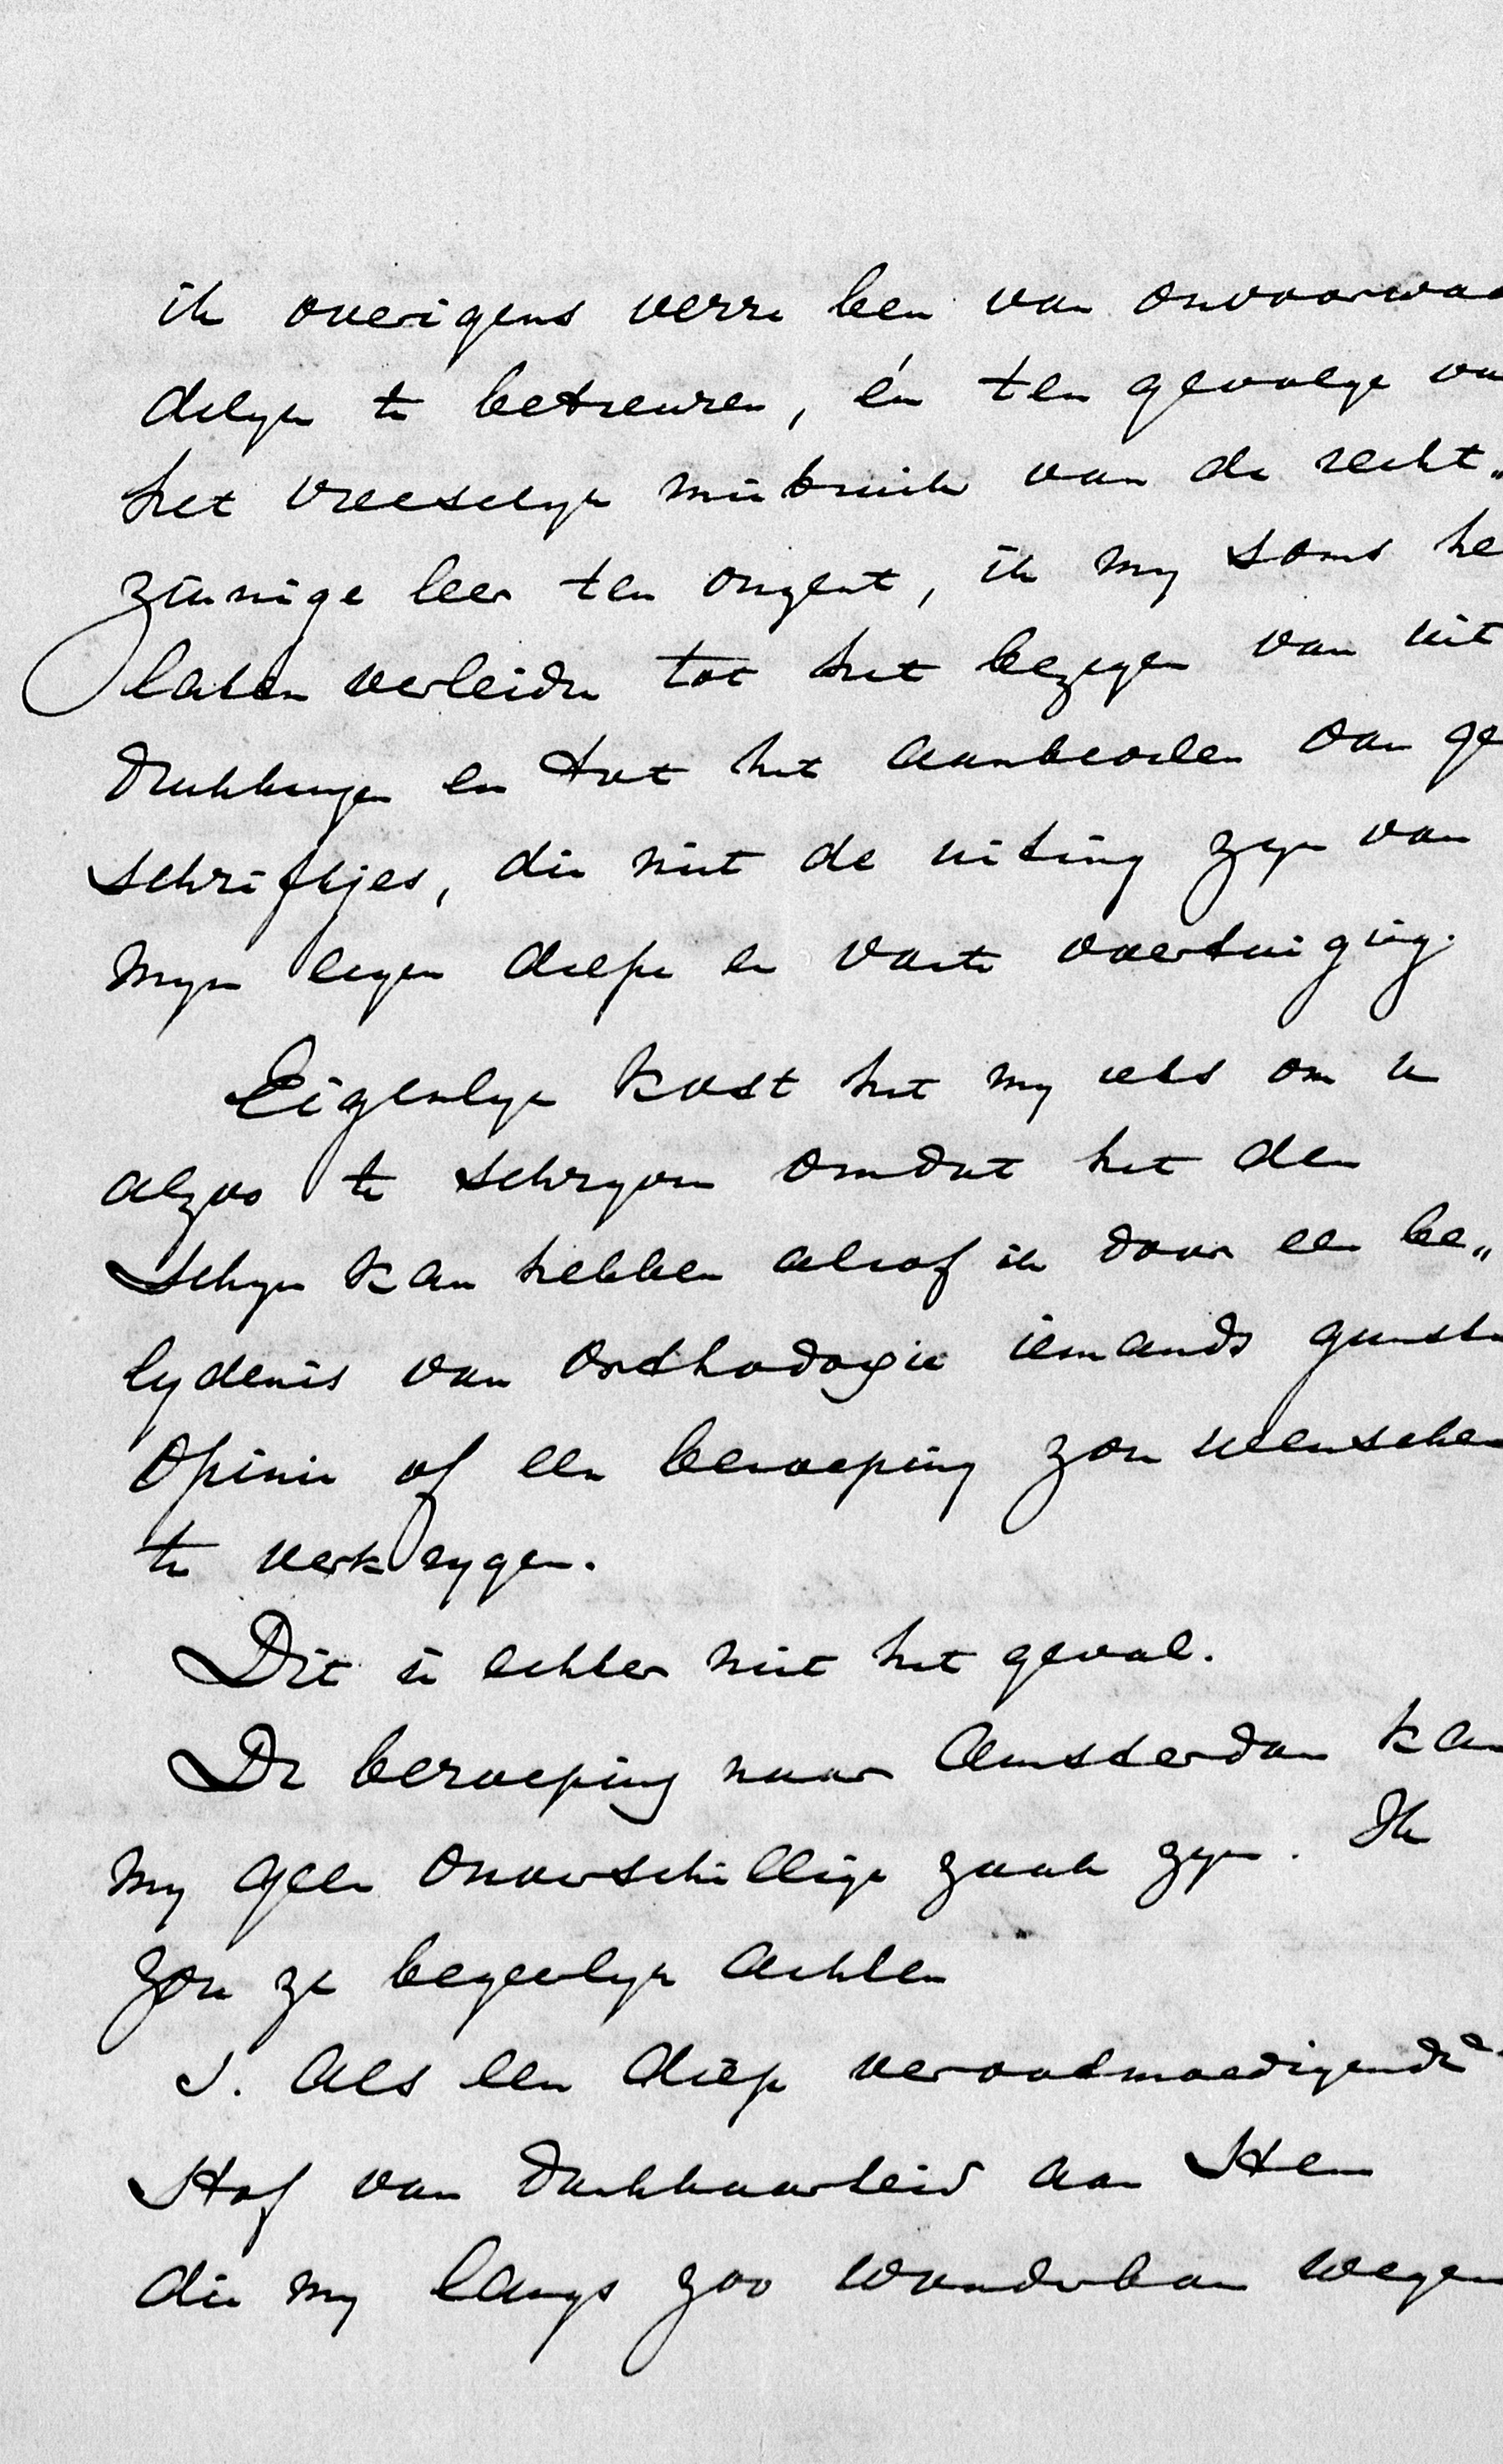 ik overigens verre ben van onvoorwaa
delyk te betreuren, én ten gevolge va
het vreeselyk misbruik van de recht„
zinnige leer ten onzent, ik my soms he
laten verleiden tot het bezigen van uit
drukkingen en tot het aanbevelen van ge
schriftjes, die niet de uiting zyn van
myn eigen diepe en vaste overtuiging.
Eigenlyk kost het my iets om u
alzoo te schryven omdat het den
schyn kan hebben alsof ik door een be„
lydenis van orthodoxie iemands gunste
opinie of een beroeping zou wenschen
te verkrygen.
Dit is echter niet het geval.
De beroeping naar Amsterdam kan
my geen onverschillige zaak zyn. Ik
zou ze begeerlyk achten
1. Als een diep verootmoedigende
stof van dankbaarheid aan Hem
die my langs zoo wonderbare wegen